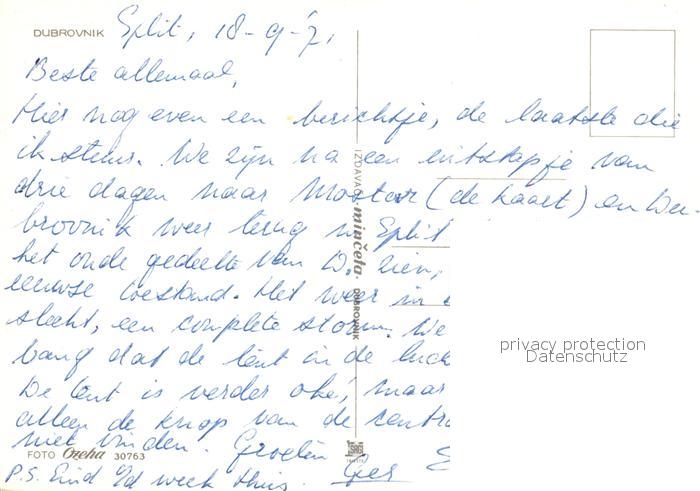 DUBROVNIK
Split, 18-9-'71
Beste allemaal,
Hier nog even een berichtje, de laatste die
ik stuur. We zijn na een uitstapje van
drie dagen naar Mostar (de kaart) en Du-
brovnik weer terug in Split
het oude gedeelte van D. zien,
eeuwse toestand. Het weer in
slecht, een complete storm. We
bang dat de tent in de luch
De tent is verder oké, maar
alleen de knop van de centr
niet vinden. Groeten
Ger
P.S. Eind v/d week thuis.
FOTO Ozeha 30763
IZDAVAČ minčeta DUBROVNIK
privacy protection
Datenschutz